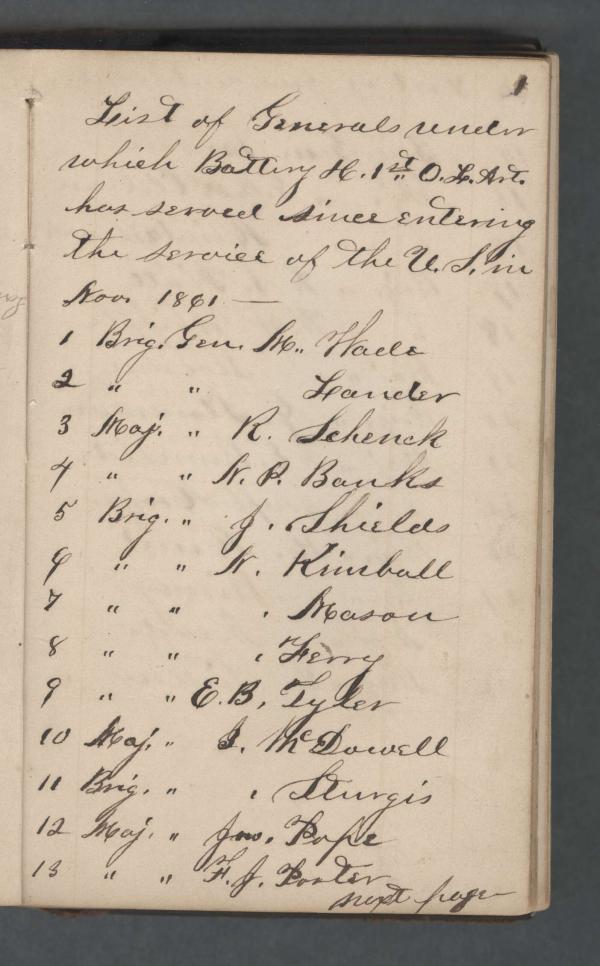 1
List of Generals under
which Battery H. 1st O. L. Art.
has served since entering
the service of the U. S. in
Nov. 1861 —
1 Brig. Gen. M. Wade
2 " " Lander
3 Maj. " R. Schenck
4 " " N. P. Banks
5 Brig. " J. Shields
6 " " N. Kimball
7 " " . Mason
8 " " . Ferry
9 " " E. B. Tyler
10 Maj. " I. McDowell
11 Brig. " . Sturgis
12 Maj. " Jno. Pope
13 " " F. J. Porter
next page